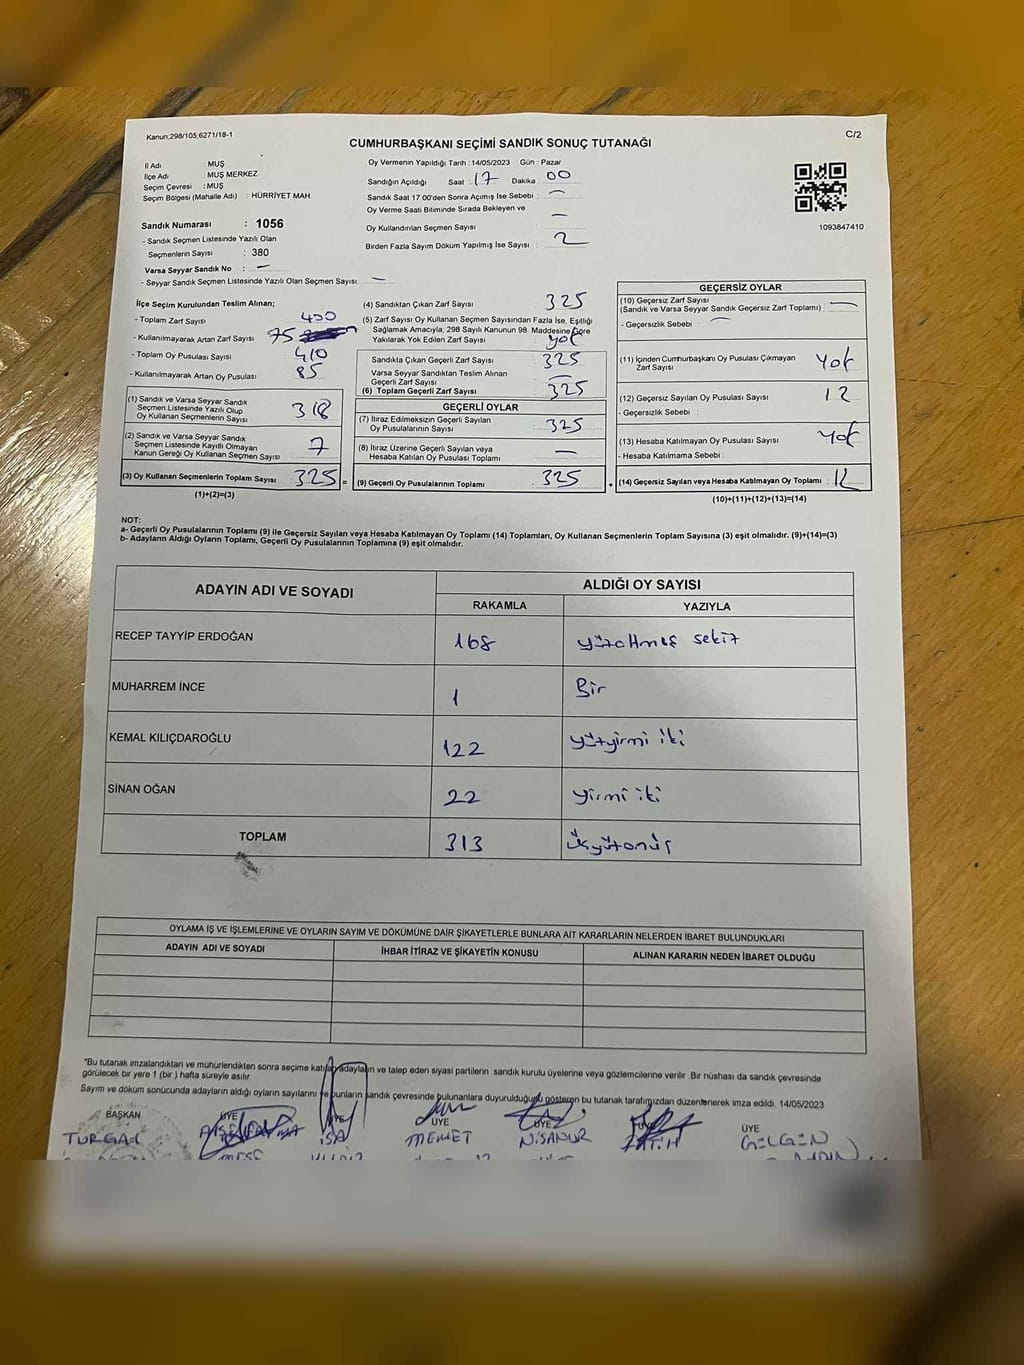 Kanun;298/105,6271/18-1
C/2
CUMHURBAŞKANI SEÇİMİ SANDIK SONUÇ TUTANAĞI
İl Adı : MUŞ
İlçe Adı : MUŞ MERKEZ
Seçim Çevresi : MUŞ
Seçim Bölgesi (Mahalle Adı) : HÜRRİYET MAH
Sandık Numarası : 1056
- Sandık Seçmen Listesinde Yazılı Olan
Seçmenlerin Sayısı : 380
Varsa Seyyar Sandık No : —
- Seyyar Sandık Seçmen Listesinde Yazılı Olan Seçmen Sayısı: —
Oy Vermenin Yapıldığı Tarih : 14/05/2023 Gün : Pazar
Sandığın Açıldığı Saat : 17 Dakika : 00
Sandık Saat 17 00'den Sonra Açımış İse Sebebi : —
Oy Verme Saati Bitiminde Sırada Bekleyen ve
Oy Kullandırılan Seçmen Sayısı : —
Birden Fazla Sayım Döküm Yapılmış İse Sayısı : 2
1093847410
İlçe Seçim Kurulundan Teslim Alınan;
- Toplam Zarf Sayısı 400
- Kullanılmayarak Artan Zarf Sayısı 75
- Toplam Oy Pusulası Sayısı 410
- Kullanılmayarak Artan Oy Pusulası 85
(1) Sandık ve Varsa Seyyar Sandık
Seçmen Listesinde Yazılı Olup
Oy Kullanan Seçmenlerin Sayısı 318
(2) Sandık ve Varsa Seyyar Sandık
Seçmen Listesinde Kayıtlı Olmayan
Kanun Gereği Oy Kullanan Seçmen Sayısı 7
(3) Oy Kullanan Seçmenlerin Toplam Sayısı 325 =
(1)+(2)=(3)
(4) Sandıktan Çıkan Zarf Sayısı 325
(5) Zarf Sayısı Oy Kullanan Seçmen Sayısından Fazla İse, Eşitliği
Sağlamak Amacıyla, 298 Sayılı Kanunun 98. Maddesine Göre
Yakılarak Yok Edilen Zarf Sayısı : yok
Sandıkta Çıkan Geçerli Zarf Sayısı : 325
Varsa Seyyar Sandıktan Teslim Alınan
Geçerli Zarf Sayısı : —
(6) Toplam Geçerli Zarf Sayısı : 325
GEÇERLİ OYLAR
(7) İtiraz Edilmeksizin Geçerli Sayılan
Oy Pusulalarının Sayısı : 325
(8) İtiraz Üzerine Geçerli Sayılan veya
Hesaba Katılan Oy Pusulası Toplamı : —
(9) Geçerli Oy Pusulalarının Toplamı : 325 +
GEÇERSİZ OYLAR
(10) Geçersiz Zarf Sayısı
(Sandık ve Varsa Seyyar Sandık Geçersiz Zarf Toplamı) : —
- Geçersizlik Sebebi : —
(11) İçinden Cumhurbaşkanı Oy Pusulası Çıkmayan
Zarf Sayısı : yok
(12) Geçersiz Sayılan Oy Pusulası Sayısı : 12
- Geçersizlik Sebebi :
(13) Hesaba Katılmayan Oy Pusulası Sayısı : yok
- Hesaba Katılmama Sebebi :
(14) Geçersiz Sayılan veya Hesaba Katılmayan Oy Toplamı : 12
(10)+(11)+(12)+(13)=(14)
NOT:
a- Geçerli Oy Pusulalarının Toplamı (9) ile Geçersiz Sayılan veya Hesaba Katılmayan Oy Toplamı (14) Toplamları, Oy Kullanan Seçmenlerin Toplam Sayısına (3) eşit olmalıdır. (9)+(14)=(3)
b- Adayların Aldığı Oyların Toplamı, Geçerli Oy Pusulalarının Toplamına (9) eşit olmalıdır.
ADAYIN ADI VE SOYADI
ALDIĞI OY SAYISI
RAKAMLA YAZIYLA
RECEP TAYYİP ERDOĞAN 168 yüzaltmış sekiz
MUHARREM İNCE 1 Bir
KEMAL KILIÇDAROĞLU 122 yüzyirmi iki
SİNAN OĞAN 22 yirmi iki
TOPLAM 313 üçyüzonüç
OYLAMA İŞ VE İŞLEMLERİNE VE OYLARIN SAYIM VE DÖKÜMÜNE DAİR ŞİKAYETLERLE BUNLARA AİT KARARLARIN NELERDEN İBARET BULUNDUKLARI
ADAYIN ADI VE SOYADI İHBAR İTİRAZ VE ŞİKAYETİN KONUSU ALINAN KARARIN NEDEN İBARET OLDUĞU
*Bu tutanak imzalandıktan ve mühürlendikten sonra seçime katılan adayların ve talep eden siyasi partilerin sandık kurulu üyelerine veya gözlemcilerine verilir .Bir nüshası da sandık çevresinde
görülecek bir yere 1 (bir ) hafta süreyle asılır.
Sayım ve döküm sonucunda adayların aldığı oyların sayılarını ve bunların sandık çevresinde bulunanlara duyurulduğunu gösteren bu tutanak tarafımızdan düzenlenerek imza edildi. 14/05/2023
BAŞKAN ÜYE ÜYE ÜYE ÜYE ÜYE ÜYE
TURGAL İSA MEHMET NİSANUR FATİH